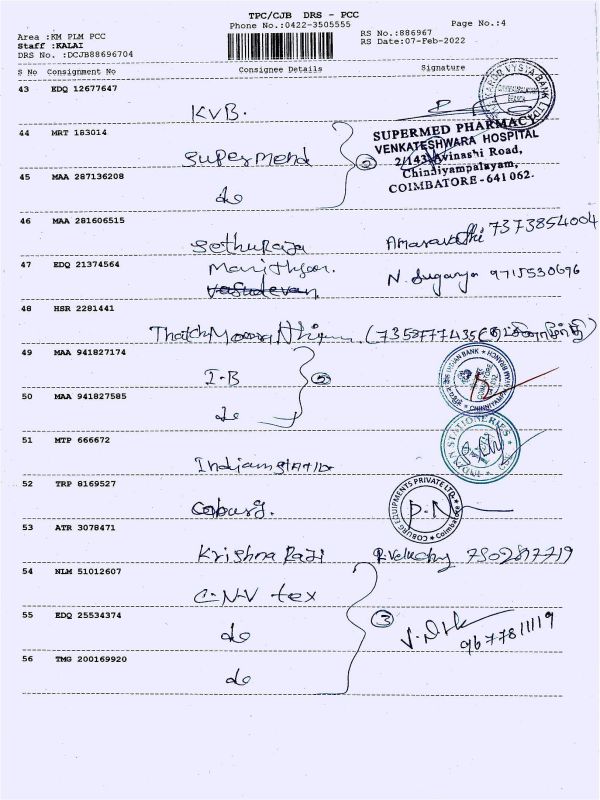 TPC/CJB DRS - PCC
Phone No.:0422-3505555
Page No.:4
Area :KM PLM PCC
Staff :KALAI
DRS No. :DCJB88696704
RS No.:886967
RS Date:07-Feb-2022
S No Consignment No Consignee Details Signature
43 EDQ 12677647
KVB.
44 MRT 183014
SUPERMED PHARMACY
VENKATESHWARA HOSPITAL
2/143 Avinashi Road,
Chinniyampalayam,
COIMBATORE - 641 062.
Supermend
②
45 MAA 287136208
do
46 MAA 281606515
Sethuraja 7373854004
47 EDQ 21374564
N. Suganya 9715530696
Vasudevan
48 HSR 2281441
49 MAA 941827174
I.B
②
INDIAN BANK
50 MAA 941827585
do
51 MTP 666672
INDIAN STATIONERIES
52 TRP 8169527
Coburg.
COBURG EQUIPMENTS PRIVATE LTD. Coimbatore
P.N
53 ATR 3078471
Krishna Raji 7502877719
54 NLM 51012607
C.N.V tex
③
55 EDQ 25534374
do
9677811119
56 TMG 200169920
do